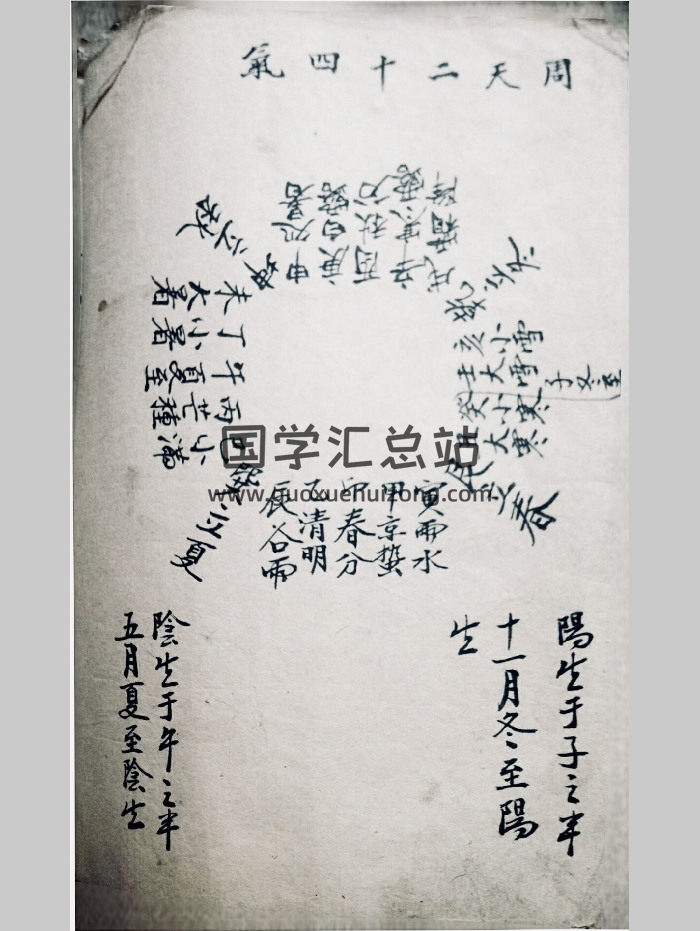 周天二十四氣
乾立冬
亥小雪
壬大雪
子冬至
癸小寒
丑大寒
艮立春
寅雨水
甲京蟄
卯春分
乙清明
辰谷雨
巽立夏
巳小滿
丙芒種
午夏至
丁小暑
未大暑
坤立秋
申处暑
庚白露
酉秋分
辛寒露
戌霜降
陽生于子之半
十一月冬至陽
生
陰生于午之半
五月夏至陰生
国学汇总站
www.guoxuehuizong.com